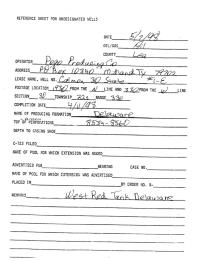 REFERENCE SHEET FOR UNDESIGNATED WELLS
DATE 5/7/98
OIL/GAS Oil
COUNTY Lea
OPERATOR Pogo Producing Co
ADDRESS PO Box 10340 Midland Tx
LEASE NAME, WELL NO. State
FOOTAGE LOCATION FROM THE N LINE AND 330 FROM THE LINE
SECTION TOWNSHIP 22s RANGE 33e
COMPLETION DATE
NAME OF PRODUCING FORMATION Delaware
TOP OF PERFORATIONS
DEPTH TO CASING SHOE
C-123 FILED
NAME OF POOL FOR WHICH EXTENSION WAS ASKED
ADVERTISED FOR HEARING CASE NO.
NAME OF POOL FOR WHICH EXTENSION WAS ADVERTISED
PLACED IN BY ORDER NO. R-
REMARKS West Red Tank Delaware